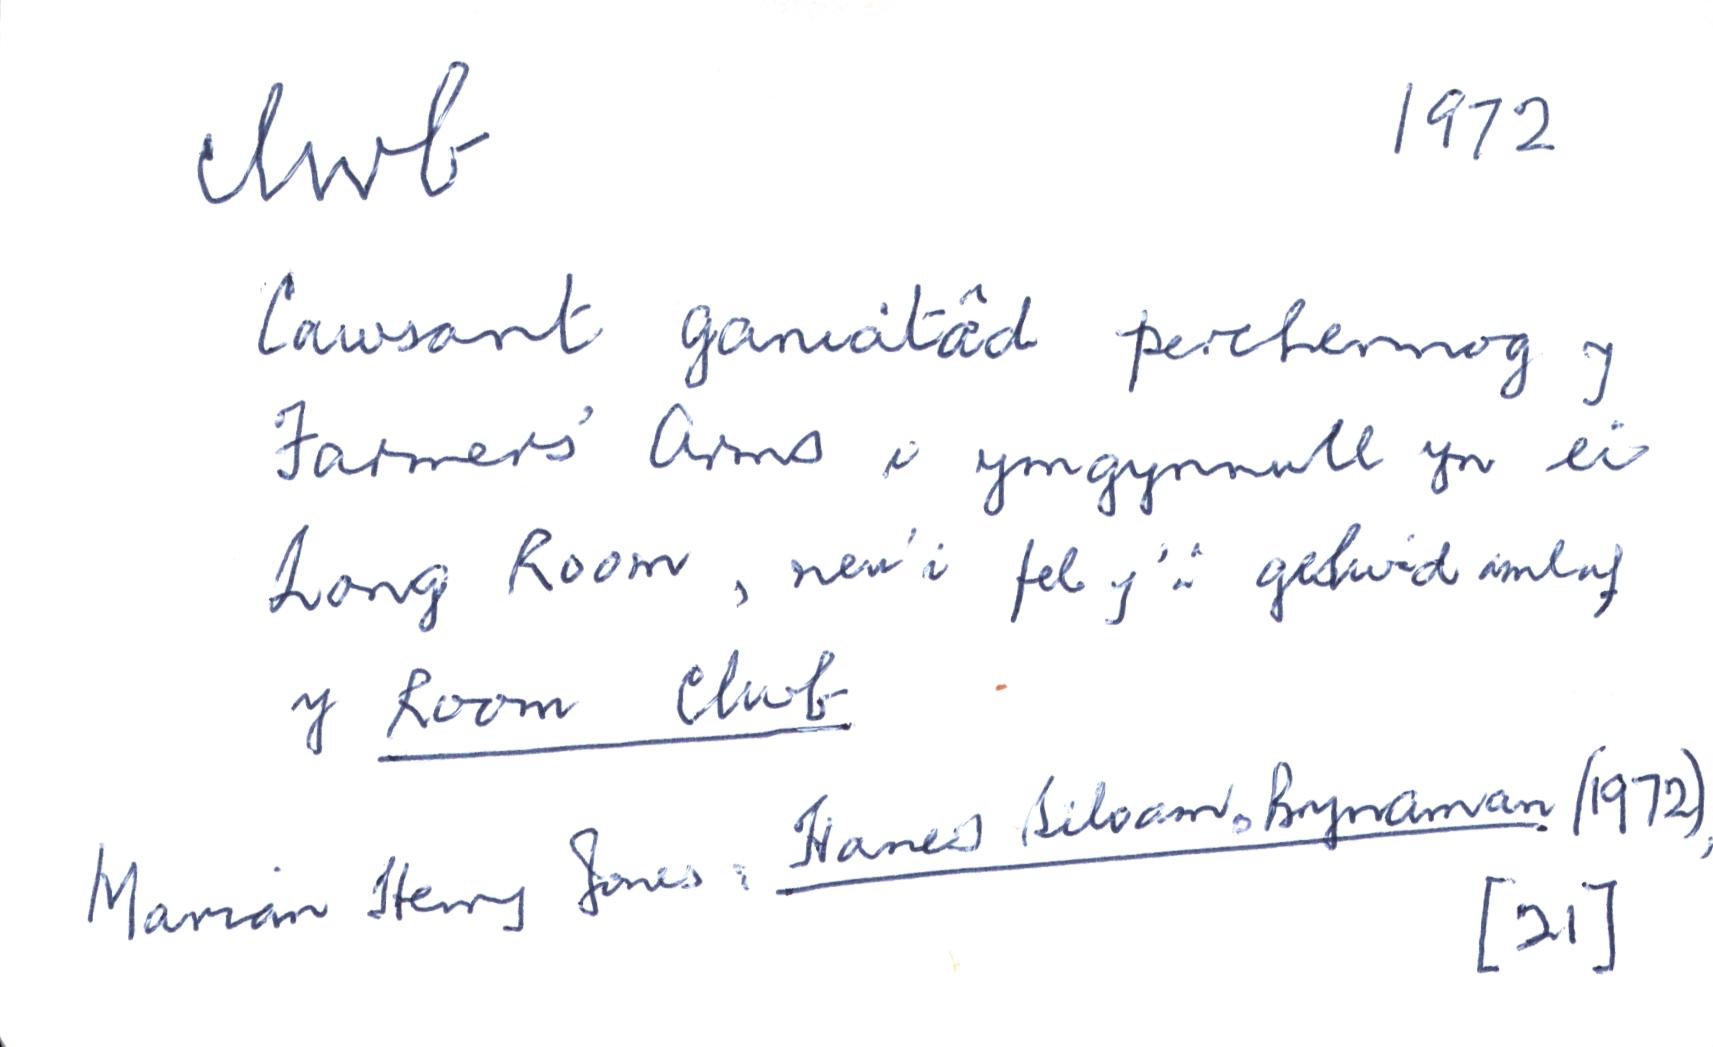 clwb 1972
Cawsant ganiatâd perchennog y
Farmers' Arms i ymgynnull yn ei
Long Room, neu'i fel y'i gelwid amlaf
y Room Clwb
Marian Henry Jones: Hanes Siloam, Brynaman (1972),
[21]